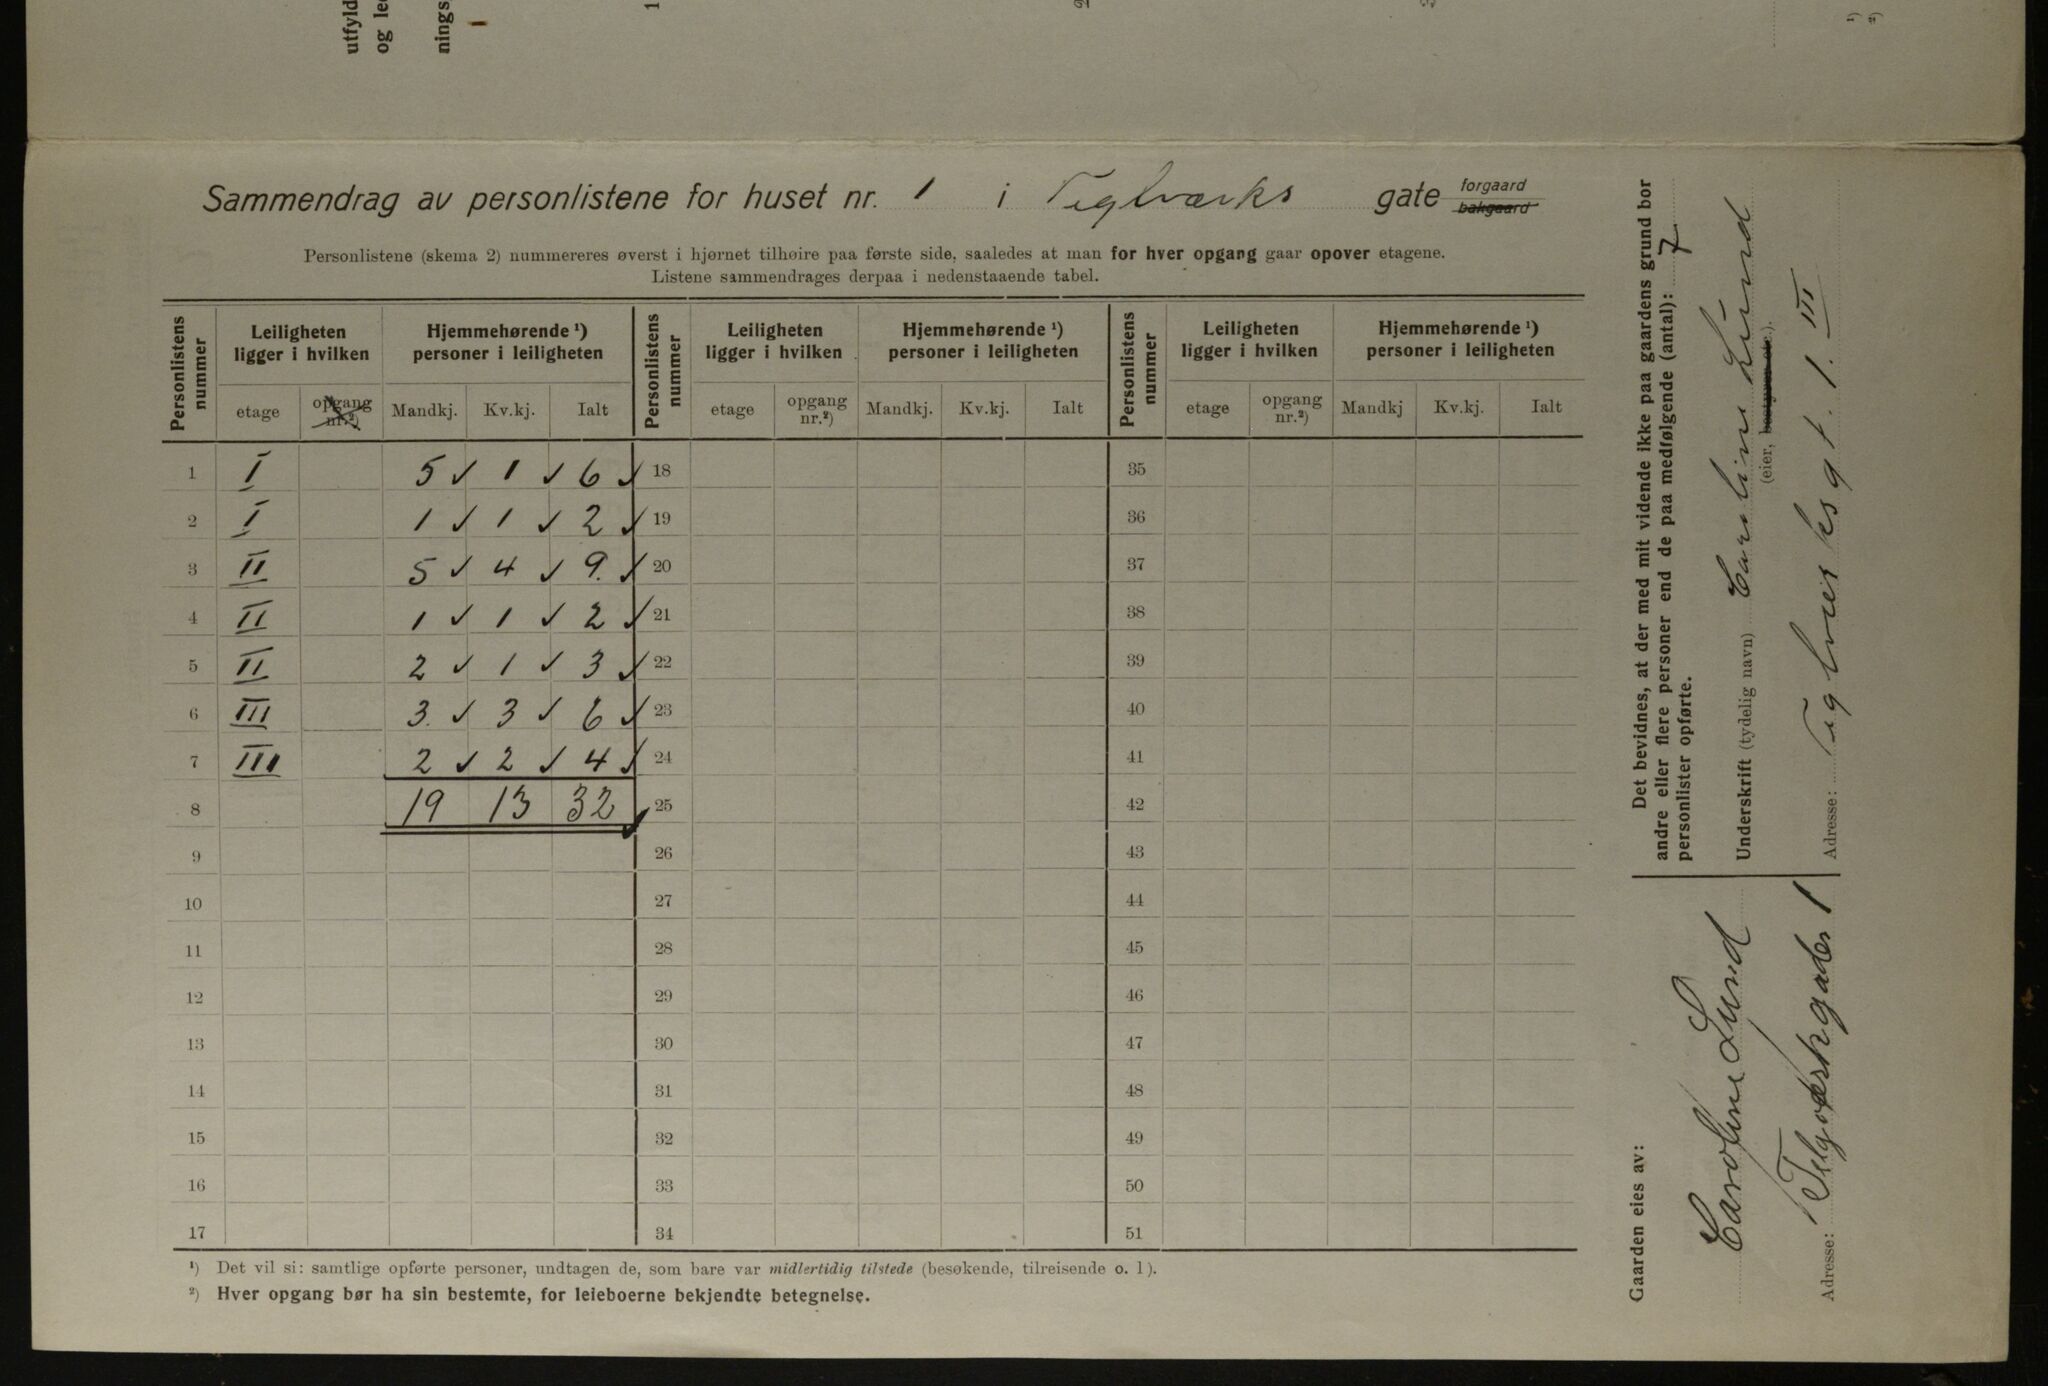 utfyld
og le
nings
1
2
3
¹)
²)
Sammendrag av personlistene for huset nr. 1 i Teglværks gate forgaard bakgaard
Personlistene (skema 2) nummereres øverst i hjørnet tilhøire paa første side, saaledes at man for hver opgang gaar opover etagene.
Listene sammendrages derpaa i nedenstaaende tabel.
Personlistens nummer Leiligheten ligger i hvilken Hjemmehørende ¹) personer i leiligheten Personlistens nummer Leiligheten ligger i hvilken Hjemmehørende ¹) personer i leiligheten Personlistens nummer Leiligheten ligger i hvilken Hjemmehørende ¹) personer i leiligheten
etage opgang nr.²) Mandkj. Kv.kj. Ialt etage opgang nr.²) Mandkj. Kv.kj. Ialt etage opgang nr.²) Mandkj Kv.kj. Ialt
1 I 5 ✓ 1 ✓ 6 ✓ 18 35
2 I 1 ✓ 1 ✓ 2 ✓ 19 36
3 II 5 ✓ 4 ✓ 9. ✓ 20 37
4 II 1 ✓ 1 ✓ 2 ✓ 21 38
5 II 2 ✓ 1 ✓ 3 ✓ 22 39
6 III 3. ✓ 3 ✓ 6 ✓ 23 40
7 III 2 ✓ 2 ✓ 4 ✓ 24 41
8 19 13 32 ✓ 25 42
9 26 43
10 27 44
11 28 45
12 29 46
13 30 47
14 31 48
15 32 49
16 33 50
17 34 51
¹) Det vil si: samtlige opførte personer, undtagen de, som bare var midlertidig tilstede (besøkende, tilreisende o. l).
²) Hver opgang bør ha sin bestemte, for leieboerne bekjendte betegnelse.
Det bevidnes, at der med mit vidende ikke paa gaardens grund bor
andre eller flere personer end de paa medfølgende (antal): 7
personlister opførte.
Underskrift (tydelig navn) Caroline Lund
(eier, bestyrer etc.).
Adresse: Teglverksgt. 1. III
Gaarden eies av:
Caroline Lund
Adresse: Telgværkgaden 1